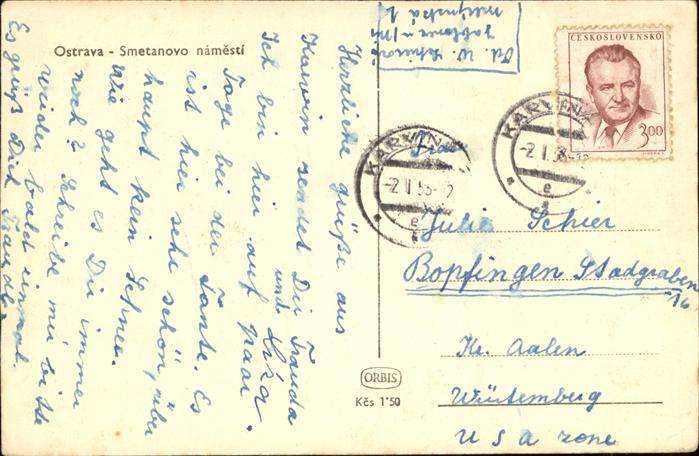 Ostrava - Smetanovo náměstí
Herzliche Grüße aus
Karwin sendet Dir Trauda
und
Ich bin hier auf paar
Tage bei der Tante. Es
ist hier sehr schön, über
haupt kein Schnee.
Wie geht es Dir immer
noch? Schreibe mir bitte
wieder bald einmal.
Es grüß Dich Trauda
Jablonec n/N
ČESKOSLOVENSKO
3,00
KARVINÁ
-2.I.53-
e
KARVINÁ
-2.I.53-
e
Frau
Julie Schier
Bopfingen Stadgraben
16
Kr. Aalen
Würtemberg
U S A zone
ORBIS
Kčs 1'50